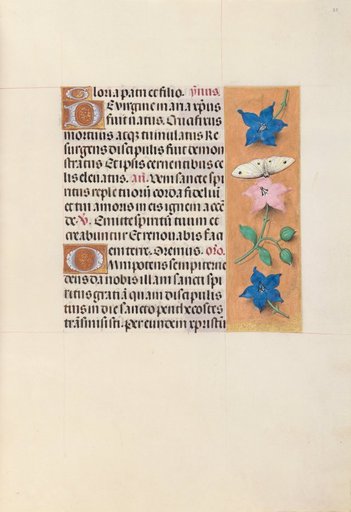 Gloria patri et filio. ymus.
De virgine maria xp̄us
fuit natus. Qua ſixus
mortuus atqz tumulatus Re
surgens discipulis fuit demon
stratus Et ipsis cernentibus ce
lis elevatus. añ. Veni sancte spi
ritus reple tuorū corda fideliū
et tui amoris in eis ignem accē
de. V. Emitte spiritū tuum et
creabuntur Et renovabis faci
em terre. Oremus. Oro.
Omnipotens sempiterne
deus da nobis illam sancti spi
ritus gratiā quam discipulis
tuis in die sancto penthecostes
trāsmisisti. per eundem xp̄istū